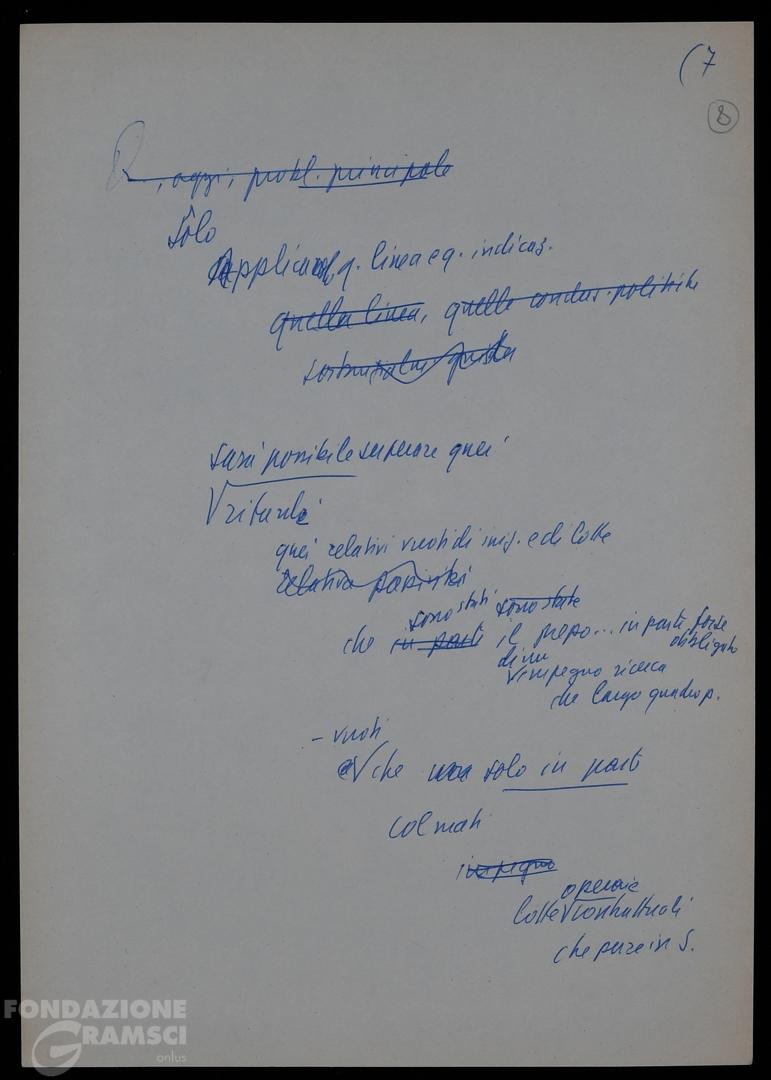 (7
8
, oggi, probl. principale
solo
Applicando q. linea e q. indicaz.
quella linea, quelle condus. politiche
sarà possibile superare quei
ritardi
quei relativi vuoti di iniz. e di lotte
relativa passività
sono stati sono state
che in parte il prezzo... in parte forse
obbligato
di un
impegno ricerca
che lungo quadro p.
- vuoti
e che solo in parte
colmati
impegno
operaie
lotte contrattuali
che pure in S.
FONDAZIONE
GRAMSCI
onlus